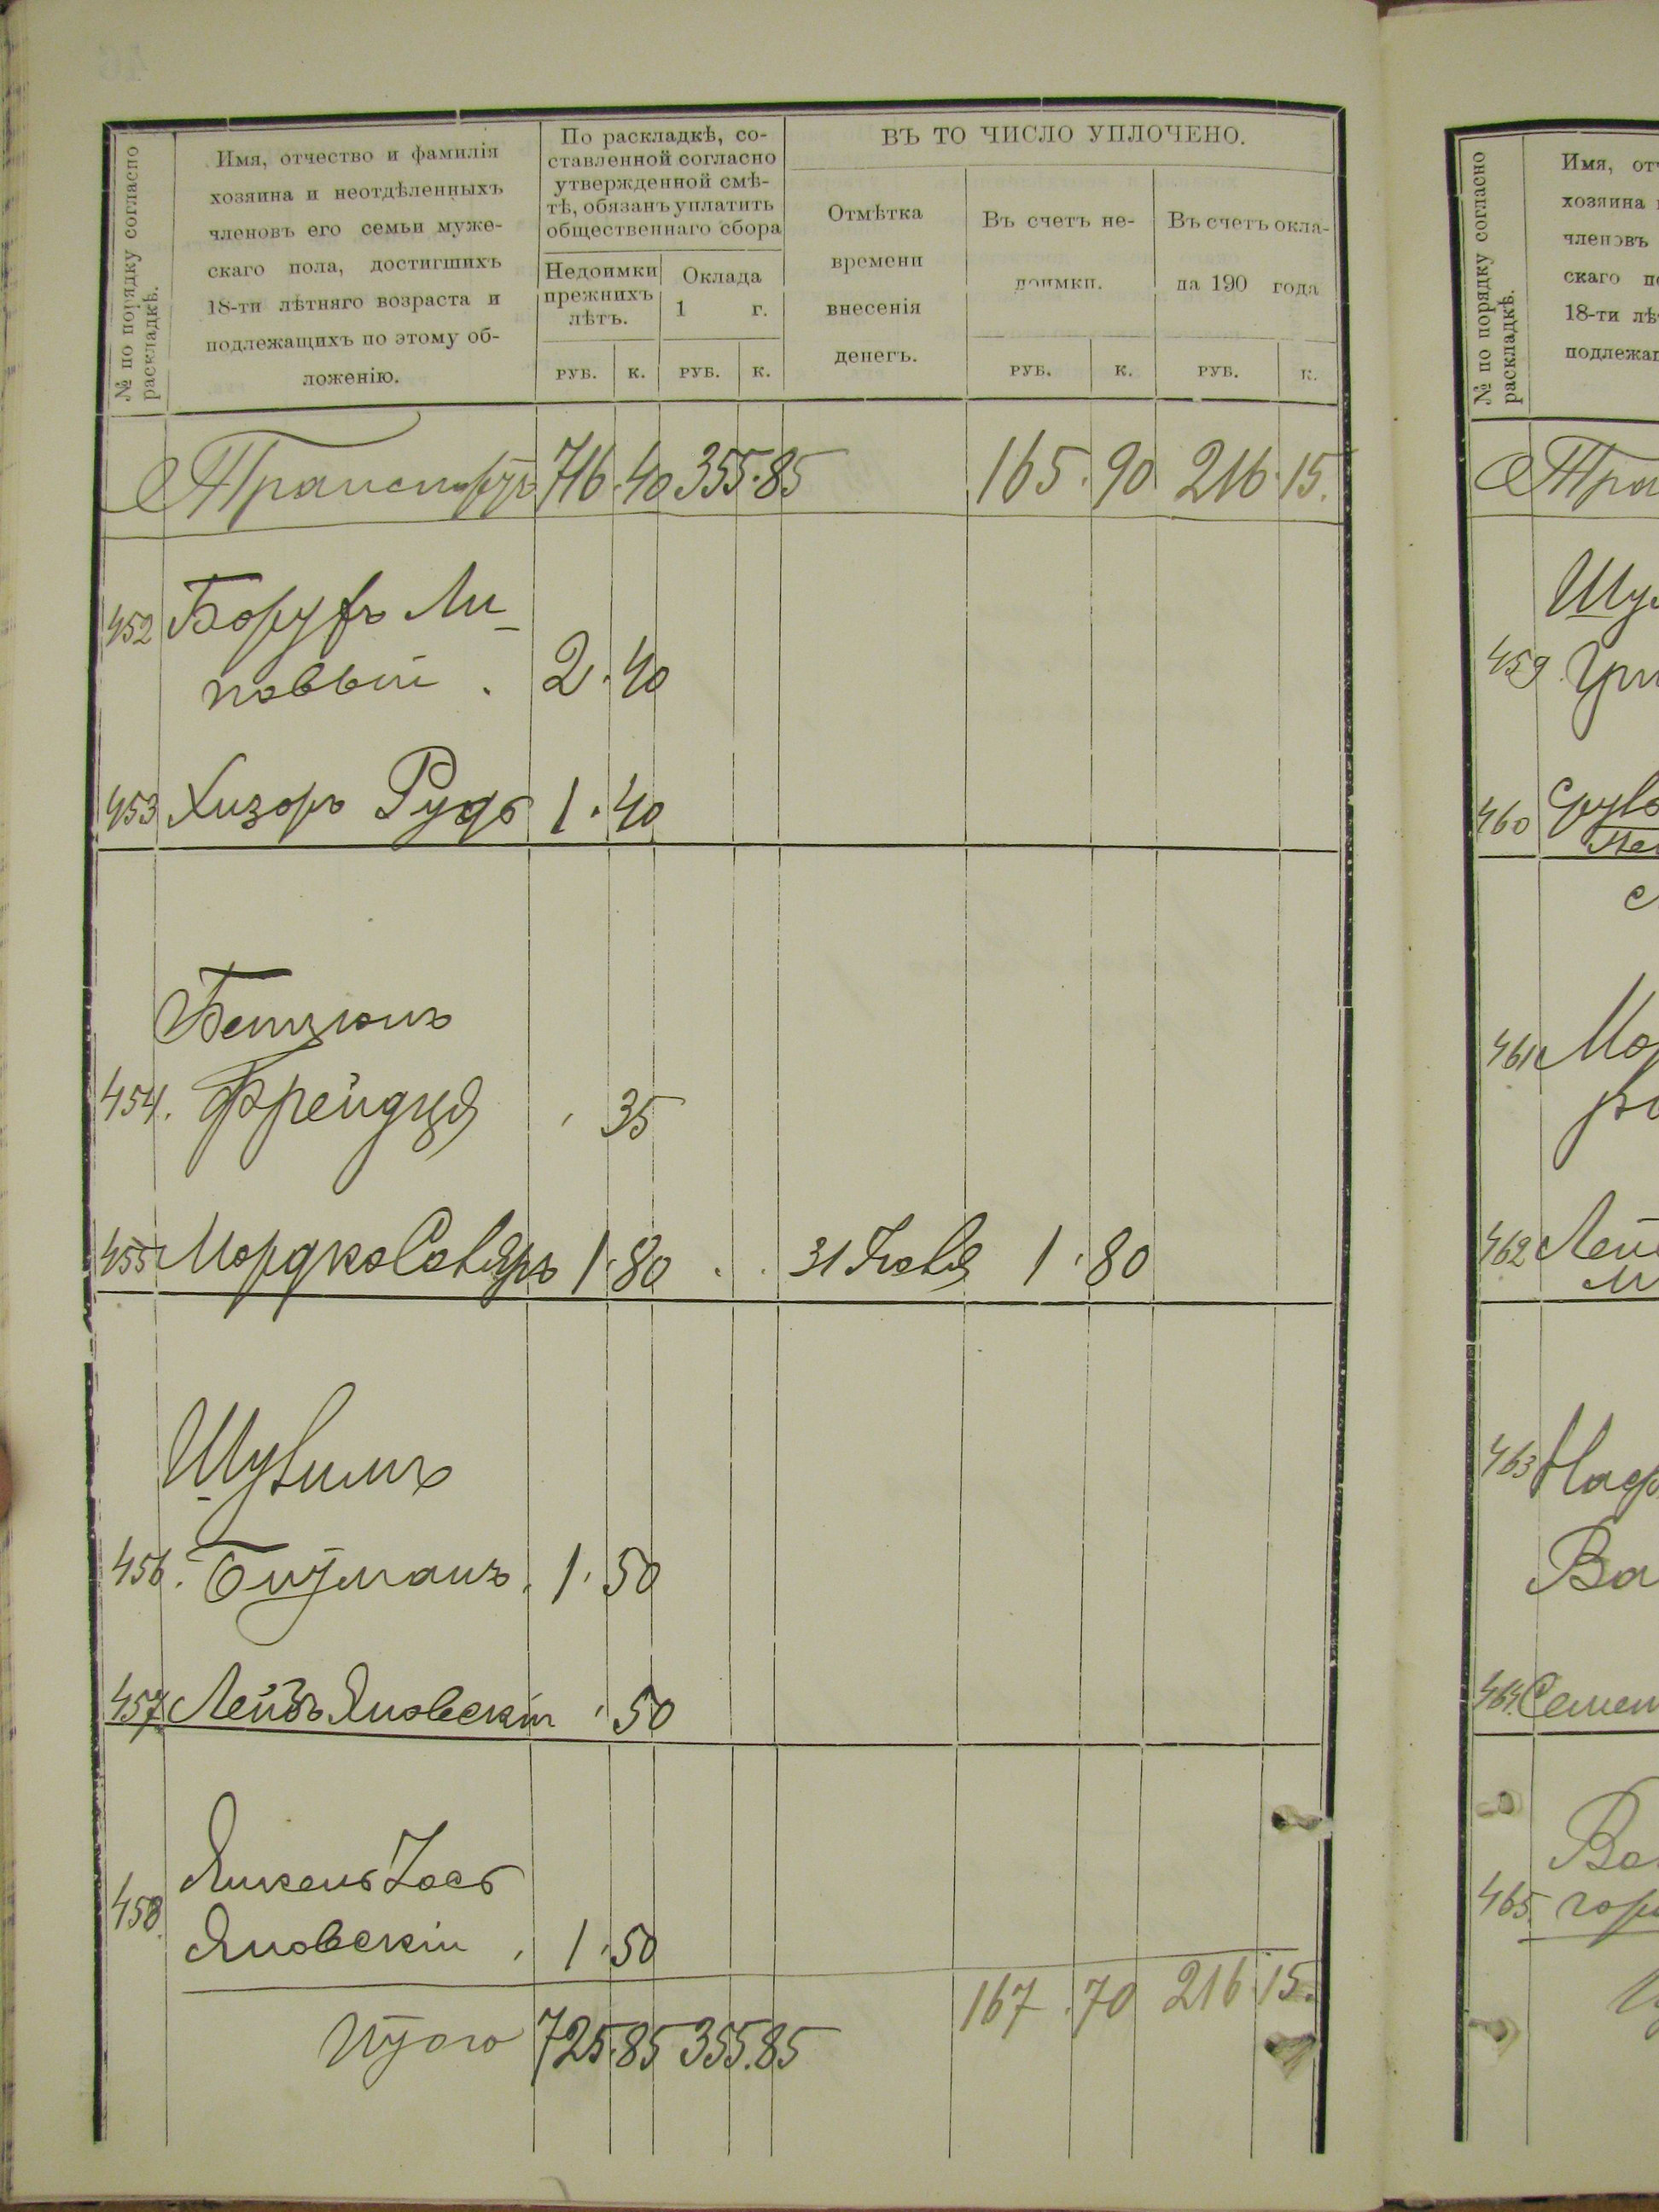 № по порядку согласно
раскладкѣ.
Имя, отчество и фамилія
хозяина и неотдѣленныхъ
членовъ его семьи муже-
скаго пола, достигшихъ
18-ти лѣтняго возраста и
подлежащихъ по этому об-
ложенію.
По раскладкѣ, со-
ставленной согласно
утвержденной смѣ-
тѣ, обязанъ уплатить
общественнаго сбора
Недоимки
прежнихъ
лѣтъ.
Оклада
1 г.
РУБ. К. РУБ. К.
ВЪ ТО ЧИСЛО УПЛОЧЕНО.
Отмѣтка
времени
внесенія
денегъ.
Въ счетъ не-
доимки.
РУБ. К.
Въ счетъ окла-
да 190 года
РУБ. К.
Транспортъ 716.40 355.85 165.90 216.15.
452 Борухъ Ли-
повый . 2.40
453 Хизоръ Рудь 1.40
Бенционъ
454. Фрейдця 35
455 Мордко 1.80 31 1.80
456. 1.50
457 Лейбъ Яновскій 50
458 Янкель Іось
Яновскій 1.50
Итого 725.85 355.85 167.70 216.15.
№ по порядку согласно
раскладкѣ.
Имя, от
хозяина
членовъ
скаго
18-ти лѣ
459
460
461
462
463
464
465